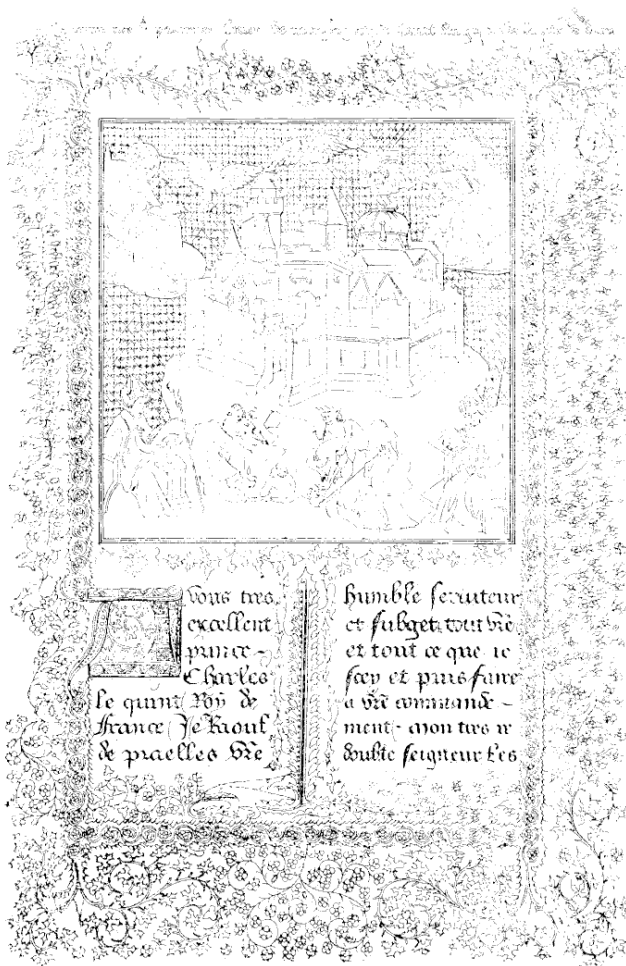 premier liure de
A vous tres
excellent
prince -
Charles
le quint Roy de
france Je Raoul
de praelles vr̃e
humble seruiteur
et subget. tout vr̃e
et tout ce que ie
scey et puis faire
a vr̃e commande -
ment. Mon tres re
doubte seigneur les